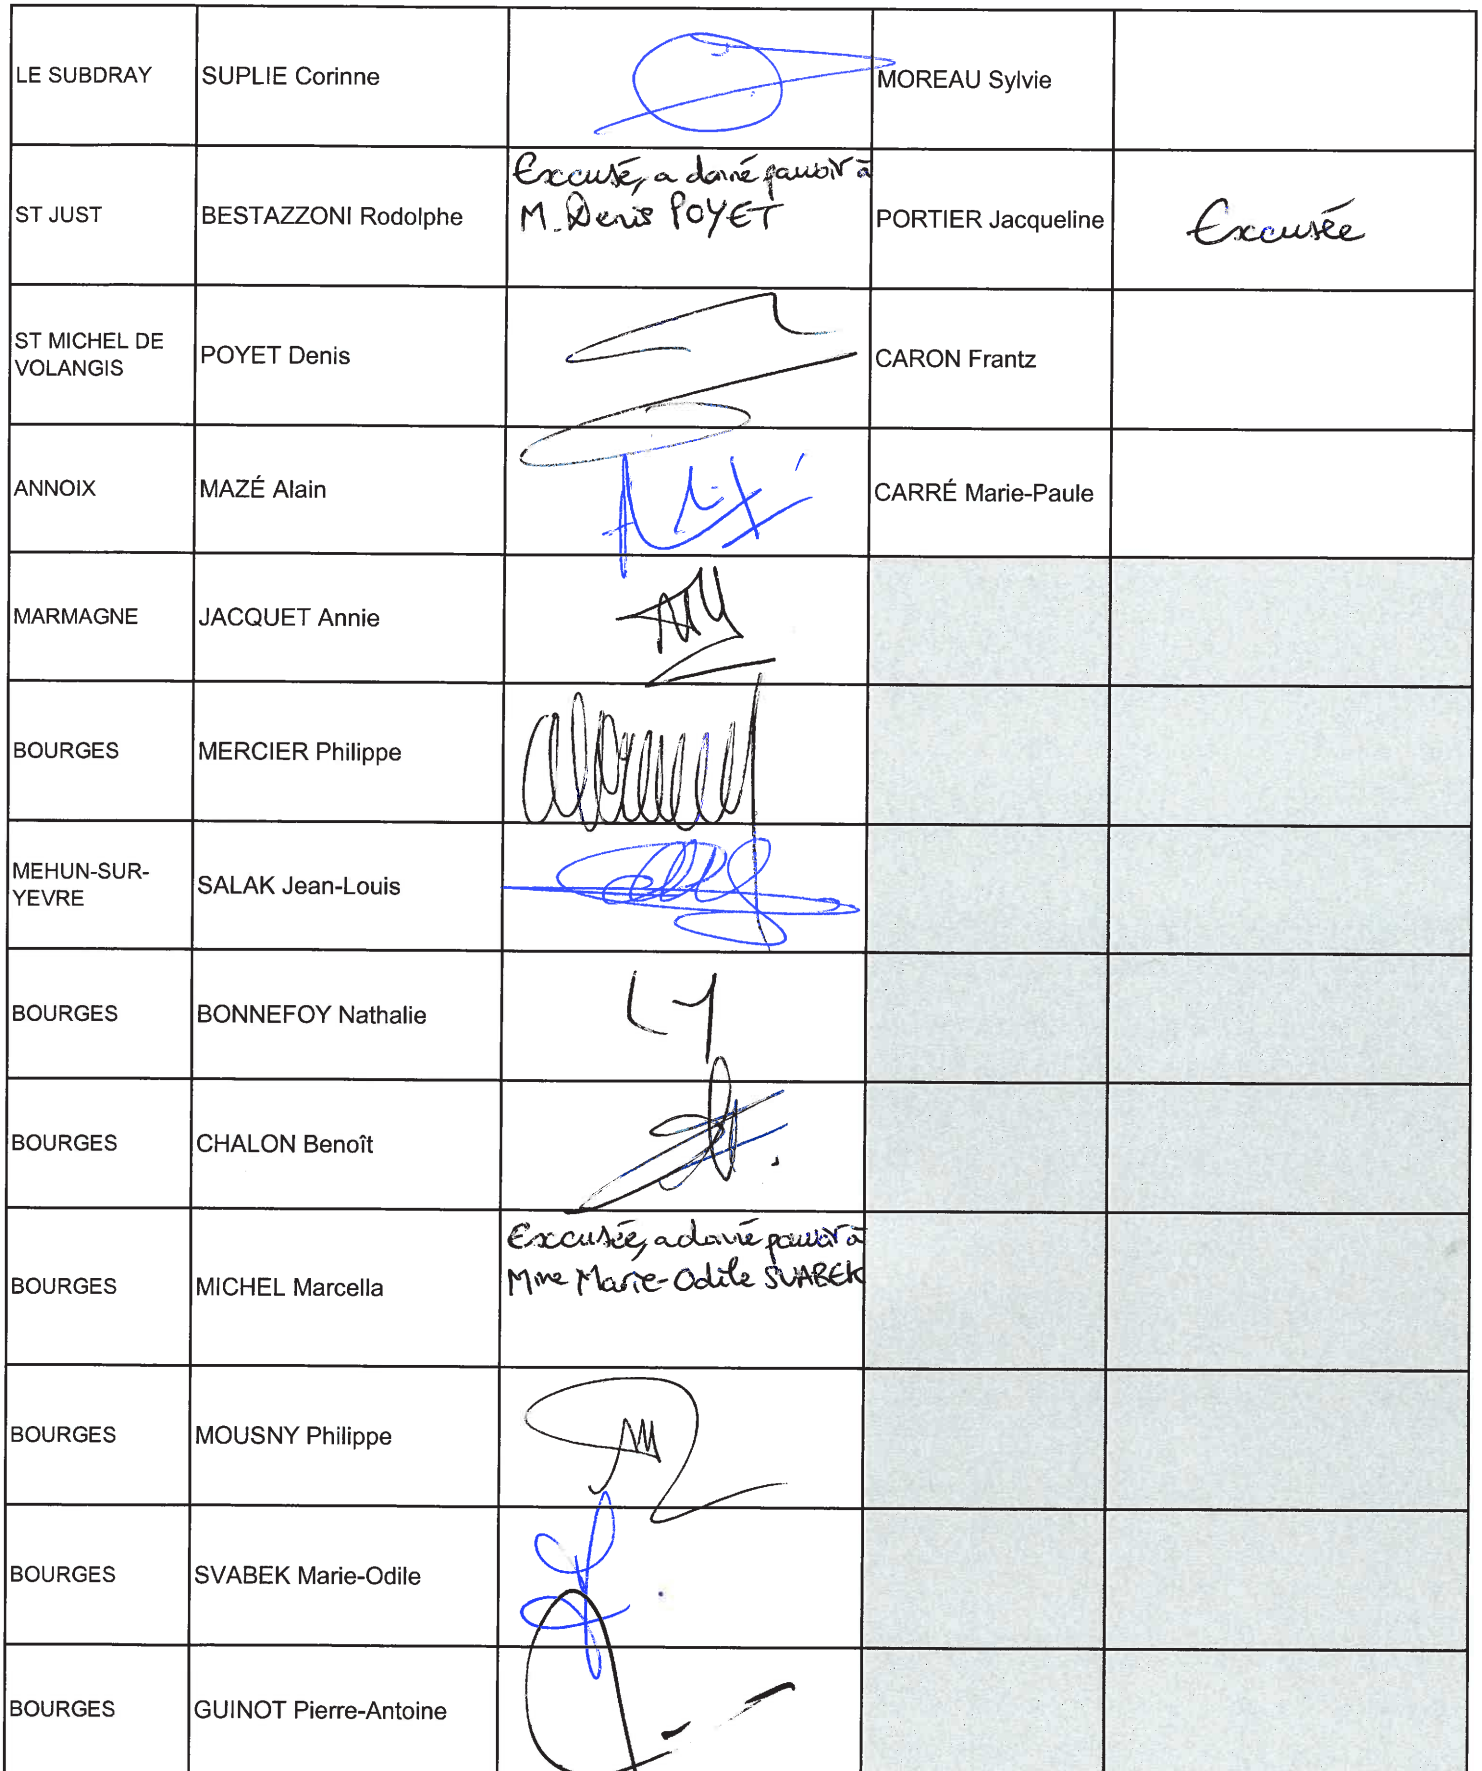 LE SUBDRAY SUPLIE Corinne MOREAU Sylvie
Excusé, a donné pouvoir à
ST JUST BESTAZZONI Rodolphe M. Denis POYET PORTIER Jacqueline Excusée
ST MICHEL DE
VOLANGIS POYET Denis CARON Frantz
ANNOIX MAZÉ Alain CARRÉ Marie-Paule
MARMAGNE JACQUET Annie
BOURGES MERCIER Philippe
MEHUN-SUR-
YEVRE SALAK Jean-Louis
BOURGES BONNEFOY Nathalie
BOURGES CHALON Benoît
Excusée, a donné pouvoir à
BOURGES MICHEL Marcella Mme Marie-Odile SVABEK
BOURGES MOUSNY Philippe
BOURGES SVABEK Marie-Odile
BOURGES GUINOT Pierre-Antoine